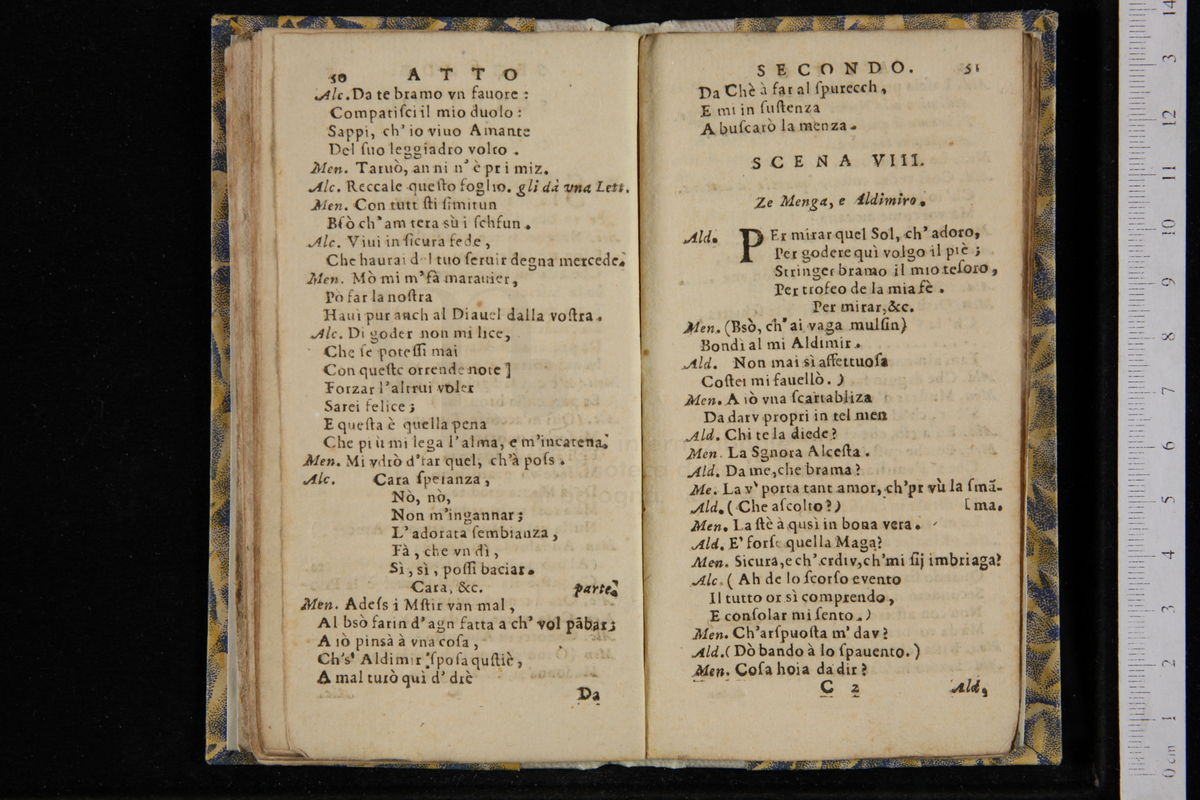 50 ATTO
Alc. Da te bramo vn fauore :
Compatiſci il mio duolo :
Sappi, ch' io viuo Amante
Del ſuo leggiadro volto .
Men. Taruò, an ni n' è pr i miz.
Alc. Reccale queſto foglio. gli dà vna Lett.
Men. Con tutt ſti ſimitun
Bſò ch' am tera sù i ſchfun .
Alc. Viui in ſicura fede ,
Che haurai del tuo ſeruir degna mercede.
Men. Mò mi m' fà marauier ,
Pò far la noſtra
Haui pur anch al Diauel dalla voſtra .
Alc. Di goder non mi lice,
Che ſe poteſſi mai
Con queſte orrende note ]
Forzar l'altrui voler
Sarei felice ;
E queſta è quella pena
Che più mi lega l'alma, e m'incatena.
Men. Mi vdrò d'far quel, ch'à poſs .
Alc. Cara ſperanza ,
Nò, nò,
Non m'ingannar ;
L' adorata ſembianza ,
Fà , che vn dì ,
Sì , sì , poſſi baciar.
Cara, &c. parte.
Men. Adeſs i Mſtir van mal ,
Al bsò farin d' agn fatta a ch' vol pābar ;
A iò pinsà à vna coſa ,
Ch's' Aldimir ſpoſa quſtiè ,
A mal turò qui d' drè
Da
SECONDO. 51
Da Chè à far al ſpurecch ,
E mi in ſuſtenza
A buſcarò la menza .
SCENA VIII.
Ze Menga, e Aldimiro.
Ald. PEr mirar quel Sol, ch' adoro,
Per godere quì volgo il piè ;
Stringer bramo il mio teſoro ,
Per trofeo de la mia fè .
Per mirar, &c.
Men. (Bsò, ch' ai vaga mulſin)
Bondì al mi Aldimir .
Ald. Non mai sì affettuoſa
Coſtei mi fauellò . )
Men. A iò vna ſcartabliza
Da darv propri in tel men
Ald. Chi te la diede ?
Men. La Sgnora Alceſta .
Ald. Da me, che brama ?
Me. La v' porta tant amor, ch'pr vù la ſmā-
Ald. ( Che aſcolto ? ) [ ma.
Men. La ſtè à qusì in bona vera .
Ald. E' forſe quella Maga ?
Men. Sicura, e ch' crdiv, ch'mi ſij imbriaga?
Alc. ( Ah de lo ſcorſo evento
Il tutto or sì comprendo ,
E conſolar mi ſento . )
Men. Ch'arſpuoſta m' dav ?
Ald. ( Dò bando à lo ſpauento. )
Men. Coſa hoia da dir ?
C 2 Ald,